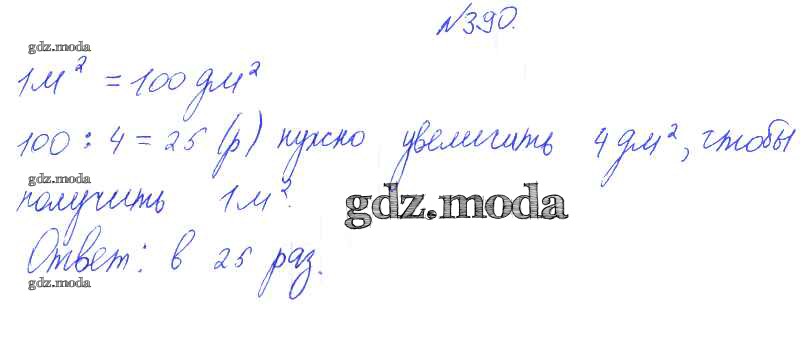 №390.
gdz.moda
1м² = 100 дм²
100 : 4 = 25 (р) нужно увеличить 4 дм², чтобы
gdz.moda
получить 1м².
gdz.moda
Ответ: в 25 раз.
gdz.moda